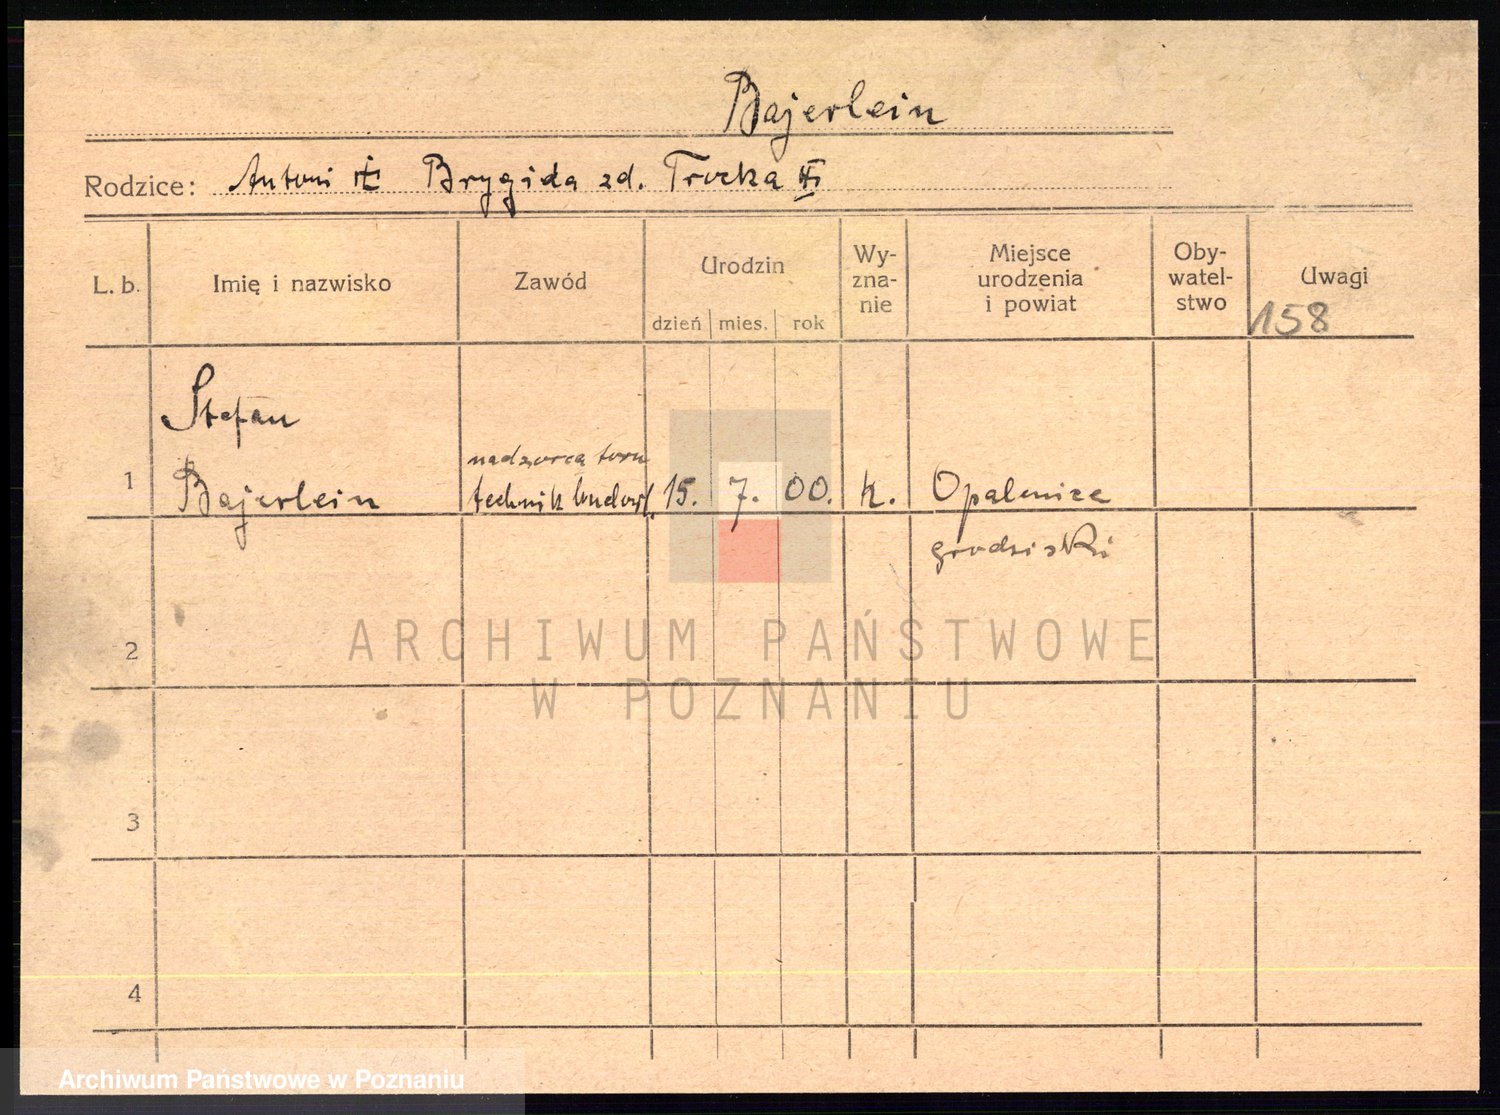 Bajerlein
Rodzice: Antoni Brygida zd. Trocka
L. b. Imię i nazwisko Zawód Urodzin dzień mies. rok Wy-
zna-
nie Miejsce
urodzenia
i powiat Oby-
watel-
stwo Uwagi
158
Stefan
nadzorca toru
1 Bajerlein technik budowl. 15. 7. 00. k. Opalenica
grodziski
ARCHIWUM PAŃSTWOWE
2
W POZNANIU
3
4
Archiwum Państwowe w Poznaniu